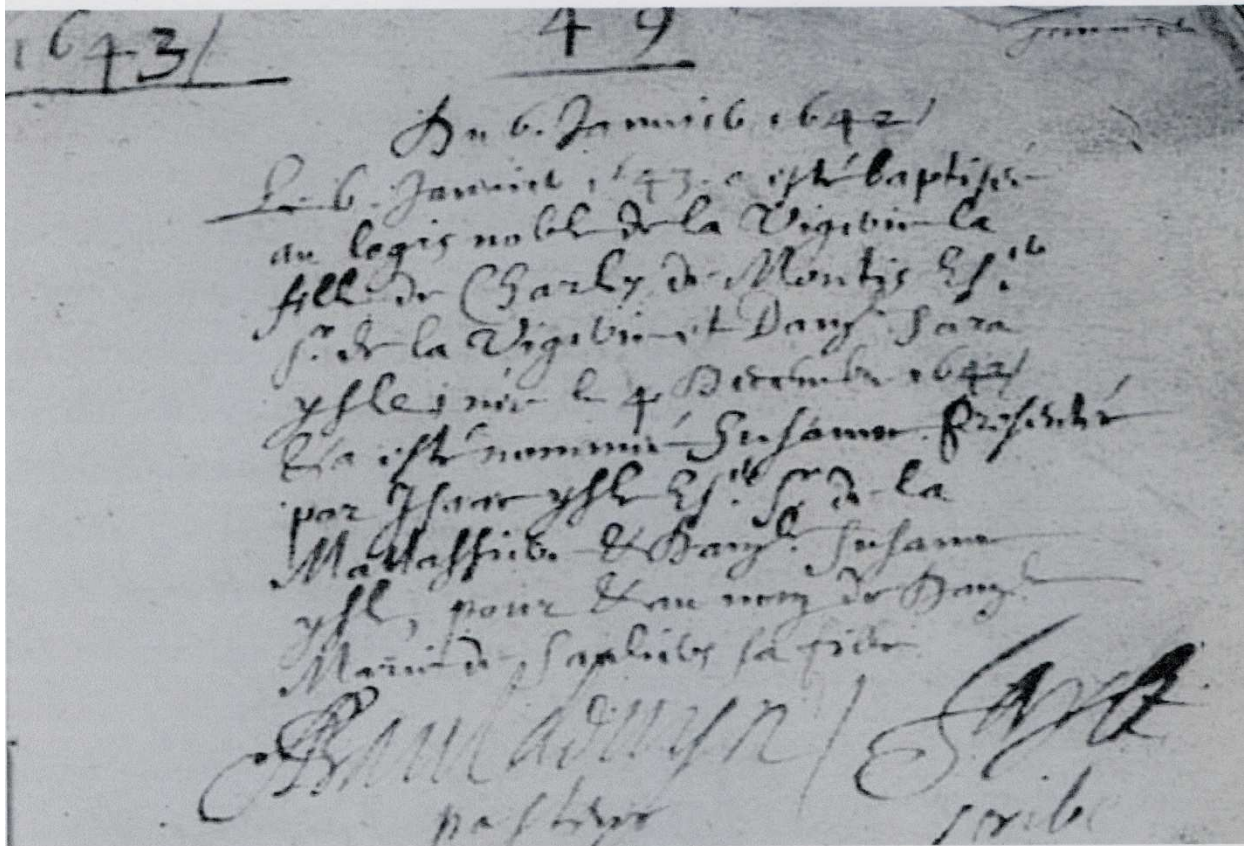 1643/ 49
Du 6. Januier 1642/
Le 6. Januier 1643. a esté baptisée
au logis noble de la Vigerie la
fille de Charles de Montis Esc.er
Sr. de la Vigerie et Dam.le Sara
ysle née le 4 Decembre 1642/
Et a esté nommée Susanne. Presentée
par Isaac ysle Esc.er Sr de la
Matassiere & Dam.le Susanne
ysle, pour & au nom de Dam.le
Marie de sa
pasteur scribe